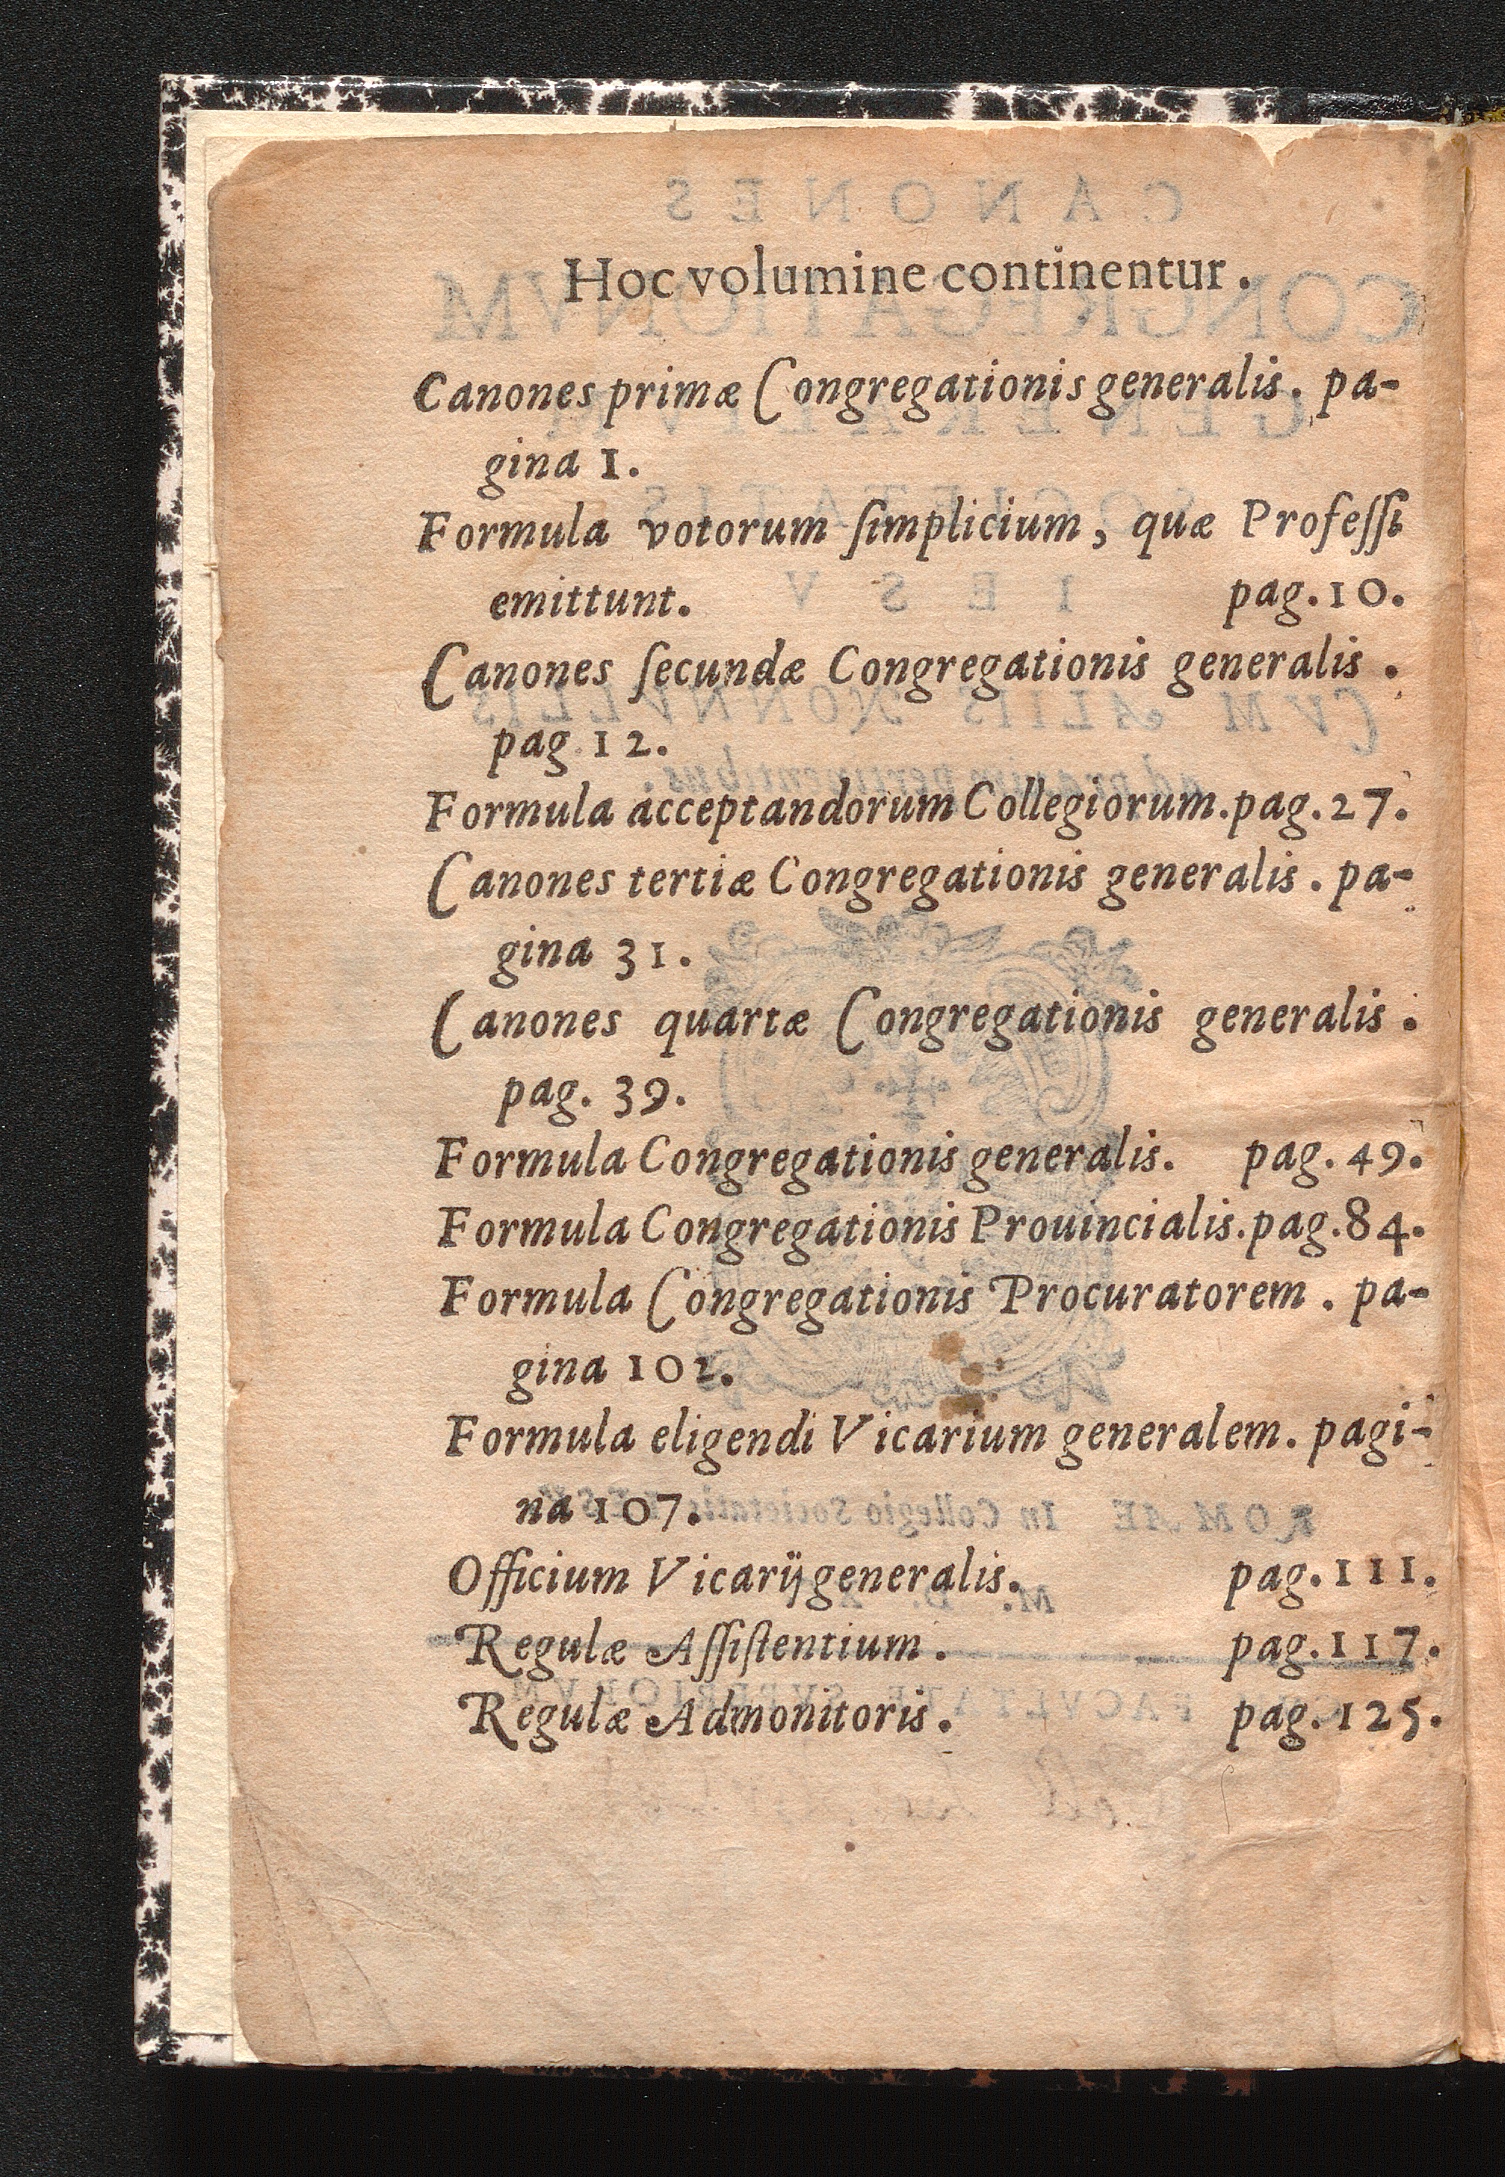 Hoc volumine continentur.
Canones primæ Congregationis generalis. pa-
gina 1.
Formula votorum ſimplicium, quæ Profeſſi
emittunt. pag. 10.
Canones ſecundæ Congregationis generalis.
pag. 12.
Formula acceptandorum Collegiorum. pag. 27.
Canones tertiæ Congregationis generalis. pa-
gina 31.
Canones quartæ Congregationis generalis.
pag. 39.
Formula Congregationis generalis. pag. 49.
Formula Congregationis Prouincialis. pag. 84.
Formula Congregationis Procuratorem. pa-
gina 102.
Formula eligendi Vicarium generalem. pagi-
na 107.
Officium Vicarij generalis. pag. 111.
Regulæ Aſſiſtentium. pag. 117.
Regulæ Admonitoris. pag. 125.